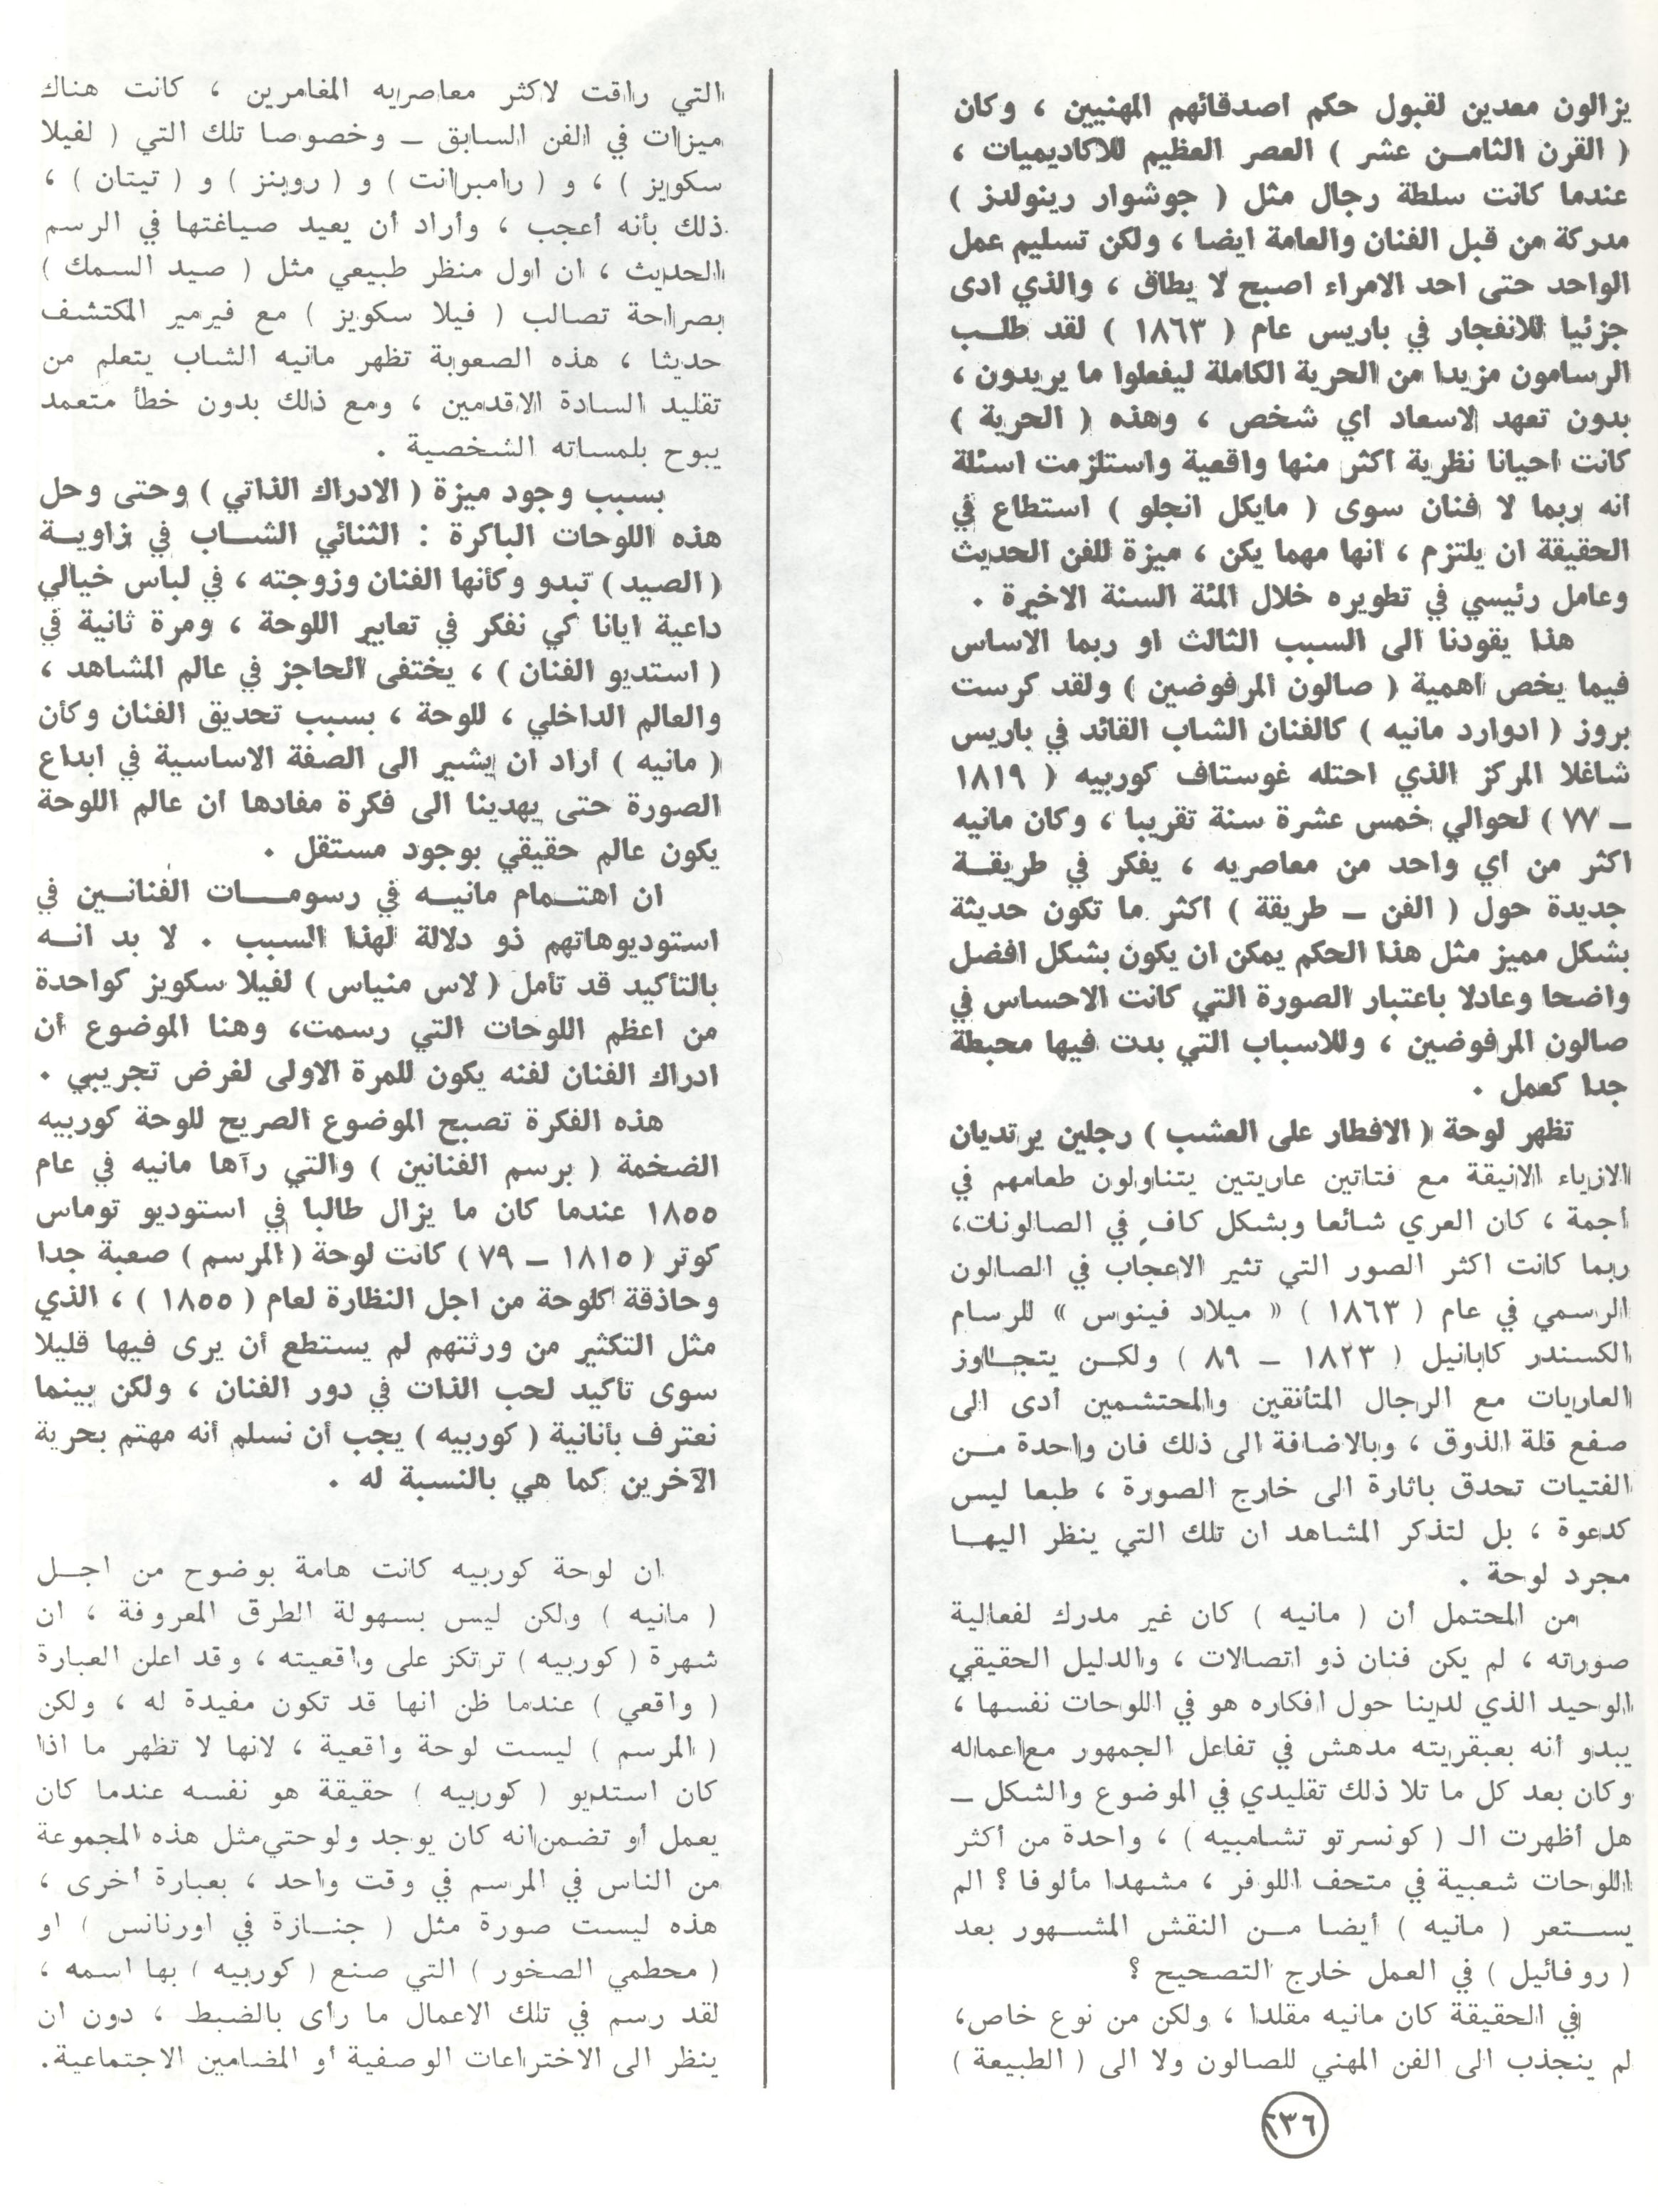 يزالون معدين لقبول حكم اصدقائهم المهنيين ، وكان
( القرن الثامن عشر ) العصر العظيم للاكاديميات ،
عندما كانت سلطة رجال مثل ( جوشوار رينولدز )
مدركة من قبل الفنان والعامة ايضا ، ولكن تسليم عمل
الواحد حتى احد الامراء اصبح لا يطاق ، والذي ادى
جزئيا للانفجار في باريس عام ( ١٨٦٣ ) لقد طلب
الرسامون مزيدا من الحرية الكاملة ليفعلوا ما يريدون ،
بدون تعهد لاسعاد اي شخص ، وهذه ( الحرية )
كانت احيانا نظرية اكثر منها واقعية واستلزمت اسئلة
انه ربما لا فنان سوى ( مايكل انجلو ) استطاع في
الحقيقة ان يلتزم ، انها مهما يكن ، ميزة للفن الحديث
وعامل رئيسي في تطويره خلال المئة السنة الاخيرة .
هذا يقودنا الى السبب الثالث او ربما الاساس
فيما يخص اهمية ( صالون المرفوضين ) ولقد كرست
بروز ( ادوارد مانيه ) كالفنان الشاب القائد في باريس
شاغلا المركز الذي احتله غوستاف كوربيه ( ١٨١٩
ـ ٧٧ ) لحوالي خمس عشرة سنة تقريبا ، وكان مانيه
اكثر من اي واحد من معاصريه ، يفكر في طريقة
جديدة حول ( الفن ـ طريقة ) اكثر ما تكون حديثة
بشكل مميز مثل هذا الحكم يمكن ان يكون بشكل افضل
واضحا وعادلا باعتبار الصورة التي كانت الاحساس في
صالون المرفوضين ، وللاسباب التي بدت فيها محبطة
جدا كعمل .
تظهر لوحة ( الافطار على العشب ) رجلين يرتديان
الازياء الانيقة مع فتاتين عاريتين يتناولون طعامهم في
اجمة ، كان العري شائعا وبشكل كاف في الصالونات،
ربما كانت اكثر الصور التي تثير الاعجاب في الصالون
الرسمي في عام ( ١٨٦٣ ) « ميلاد فينوس » للرسام
الكسندر كابانيل ( ١٨٢٣ ـ ٨٩ ) ولكن يتجاوز
العاريات مع الرجال المتأنقين والمحتشمين أدى الى
صفع قلة الذوق ، وبالاضافة الى ذلك فان واحدة من
الفتيات تحدق باثارة الى خارج الصورة ، طبعا ليس
كدعوة ، بل لتذكر المشاهد ان تلك التي ينظر اليها
مجرد لوحة .
من المحتمل أن ( مانيه ) كان غير مدرك لفعالية
صورته ، لم يكن فنان ذو اتصالات ، والدليل الحقيقي
الوحيد الذي لدينا حول افكاره هو في اللوحات نفسها ،
يبدو أنه بعبقريته مدهش في تفاعل الجمهور مع اعماله
وكان بعد كل ما تلا ذلك تقليدي في الموضوع والشكل ـ
هل أظهرت الـ ( كونسرتو تشامبيه ) ، واحدة من أكثر
اللوحات شعبية في متحف اللوفر ، مشهدا مألوفا ؟ الم
يستعر ( مانيه ) أيضا من النقش المشهور بعد
( روفائيل ) في العمل خارج التصحيح ؟
في الحقيقة كان مانيه مقلدا ، ولكن من نوع خاص،
لم ينجذب الى الفن المهني للصالون ولا الى ( الطبيعة )
التي راقت لاكثر معاصريه المغامرين ، كانت هناك
ميزات في الفن السابق ـ وخصوصا تلك التي ( لفيلا
سكويز ) ، و ( رامبرانت ) و ( روبنز ) و ( تيتان ) ،
ذلك بأنه أعجب ، وأراد أن يعيد صياغتها في الرسم
الحديث ، ان اول منظر طبيعي مثل ( صيد السمك )
بصراحة تصالب ( فيلا سكويز ) مع فيرمير المكتشف
حديثا ، هذه الصعوبة تظهر مانيه الشاب يتعلم من
تقليد السادة الاقدمين ، ومع ذلك بدون خطأ متعمد
يبوح بلمساته الشخصية .
بسبب وجود ميزة ( الادراك الذاتي ) وحتى وحل
هذه اللوحات الباكرة : الثنائي الشاب في زاوية
( الصيد ) تبدو وكأنها الفنان وزوجته ، في لباس خيالي
داعية ايانا كي نفكر في تعابير اللوحة ، ومرة ثانية في
( استديو الفنان ) ، يختفى الحاجز في عالم المشاهد ،
والعالم الداخلي ، للوحة ، بسبب تحديق الفنان وكأن
( مانيه ) أراد ان يشير الى الصفة الاساسية في ابداع
الصورة حتى يهدينا الى فكرة مفادها ان عالم اللوحة
يكون عالم حقيقي بوجود مستقل .
ان اهتمام مانيه في رسومات الفنانين في
استوديوهاتهم ذو دلالة لهذا السبب . لا بد انه
بالتأكيد قد تأمل ( لاس منياس ) لفيلا سكويز كواحدة
من اعظم اللوحات التي رسمت، وهنا الموضوع أن
ادراك الفنان لفنه يكون للمرة الاولى لفرض تجريبي .
هذه الفكرة تصبح الموضوع الصريح للوحة كوربيه
الضخمة ( برسم الفنانين ) والتي رآها مانيه في عام
١٨٥٥ عندما كان ما يزال طالبا في استوديو توماس
كوتر ( ١٨١٥ ـ ٧٩ ) كانت لوحة ( المرسم ) صعبة جدا
وحاذقة كلوحة من اجل النظارة لعام ( ١٨٥٥ ) ، الذي
مثل التكثير من ورثتهم لم يستطع أن يرى فيها قليلا
سوى تأكيد لحب الذات في دور الفنان ، ولكن بينما
نعترف بأنانية ( كوربيه ) يجب أن نسلم أنه مهتم بحرية
الآخرين كما هي بالنسبة له .
ان لوحة كوربيه كانت هامة بوضوح من اجل
( مانيه ) ولكن ليس بسهولة الطرق المعروفة ، ان
شهرة ( كوربيه ) ترتكز على واقعيته ، وقد اعلن العبارة
( واقعي ) عندما ظن انها قد تكون مفيدة له ، ولكن
( المرسم ) ليست لوحة واقعية ، لانها لا تظهر ما اذا
كان استديو ( كوربيه ) حقيقة هو نفسه عندما كان
يعمل أو تضمن انه كان يوجد ولوحتي مثل هذه المجموعة
من الناس في المرسم في وقت واحد ، بعبارة أخرى ،
هذه ليست صورة مثل ( جنازة في اورنانس ) او
( محطمي الصخور ) التي صنع ( كوربيه ) بها اسمه ،
لقد رسم في تلك الاعمال ما رأى بالضبط ، دون ان
ينظر الى الاختراعات الوصفية أو المضامين الاجتماعية.
٢٣٦